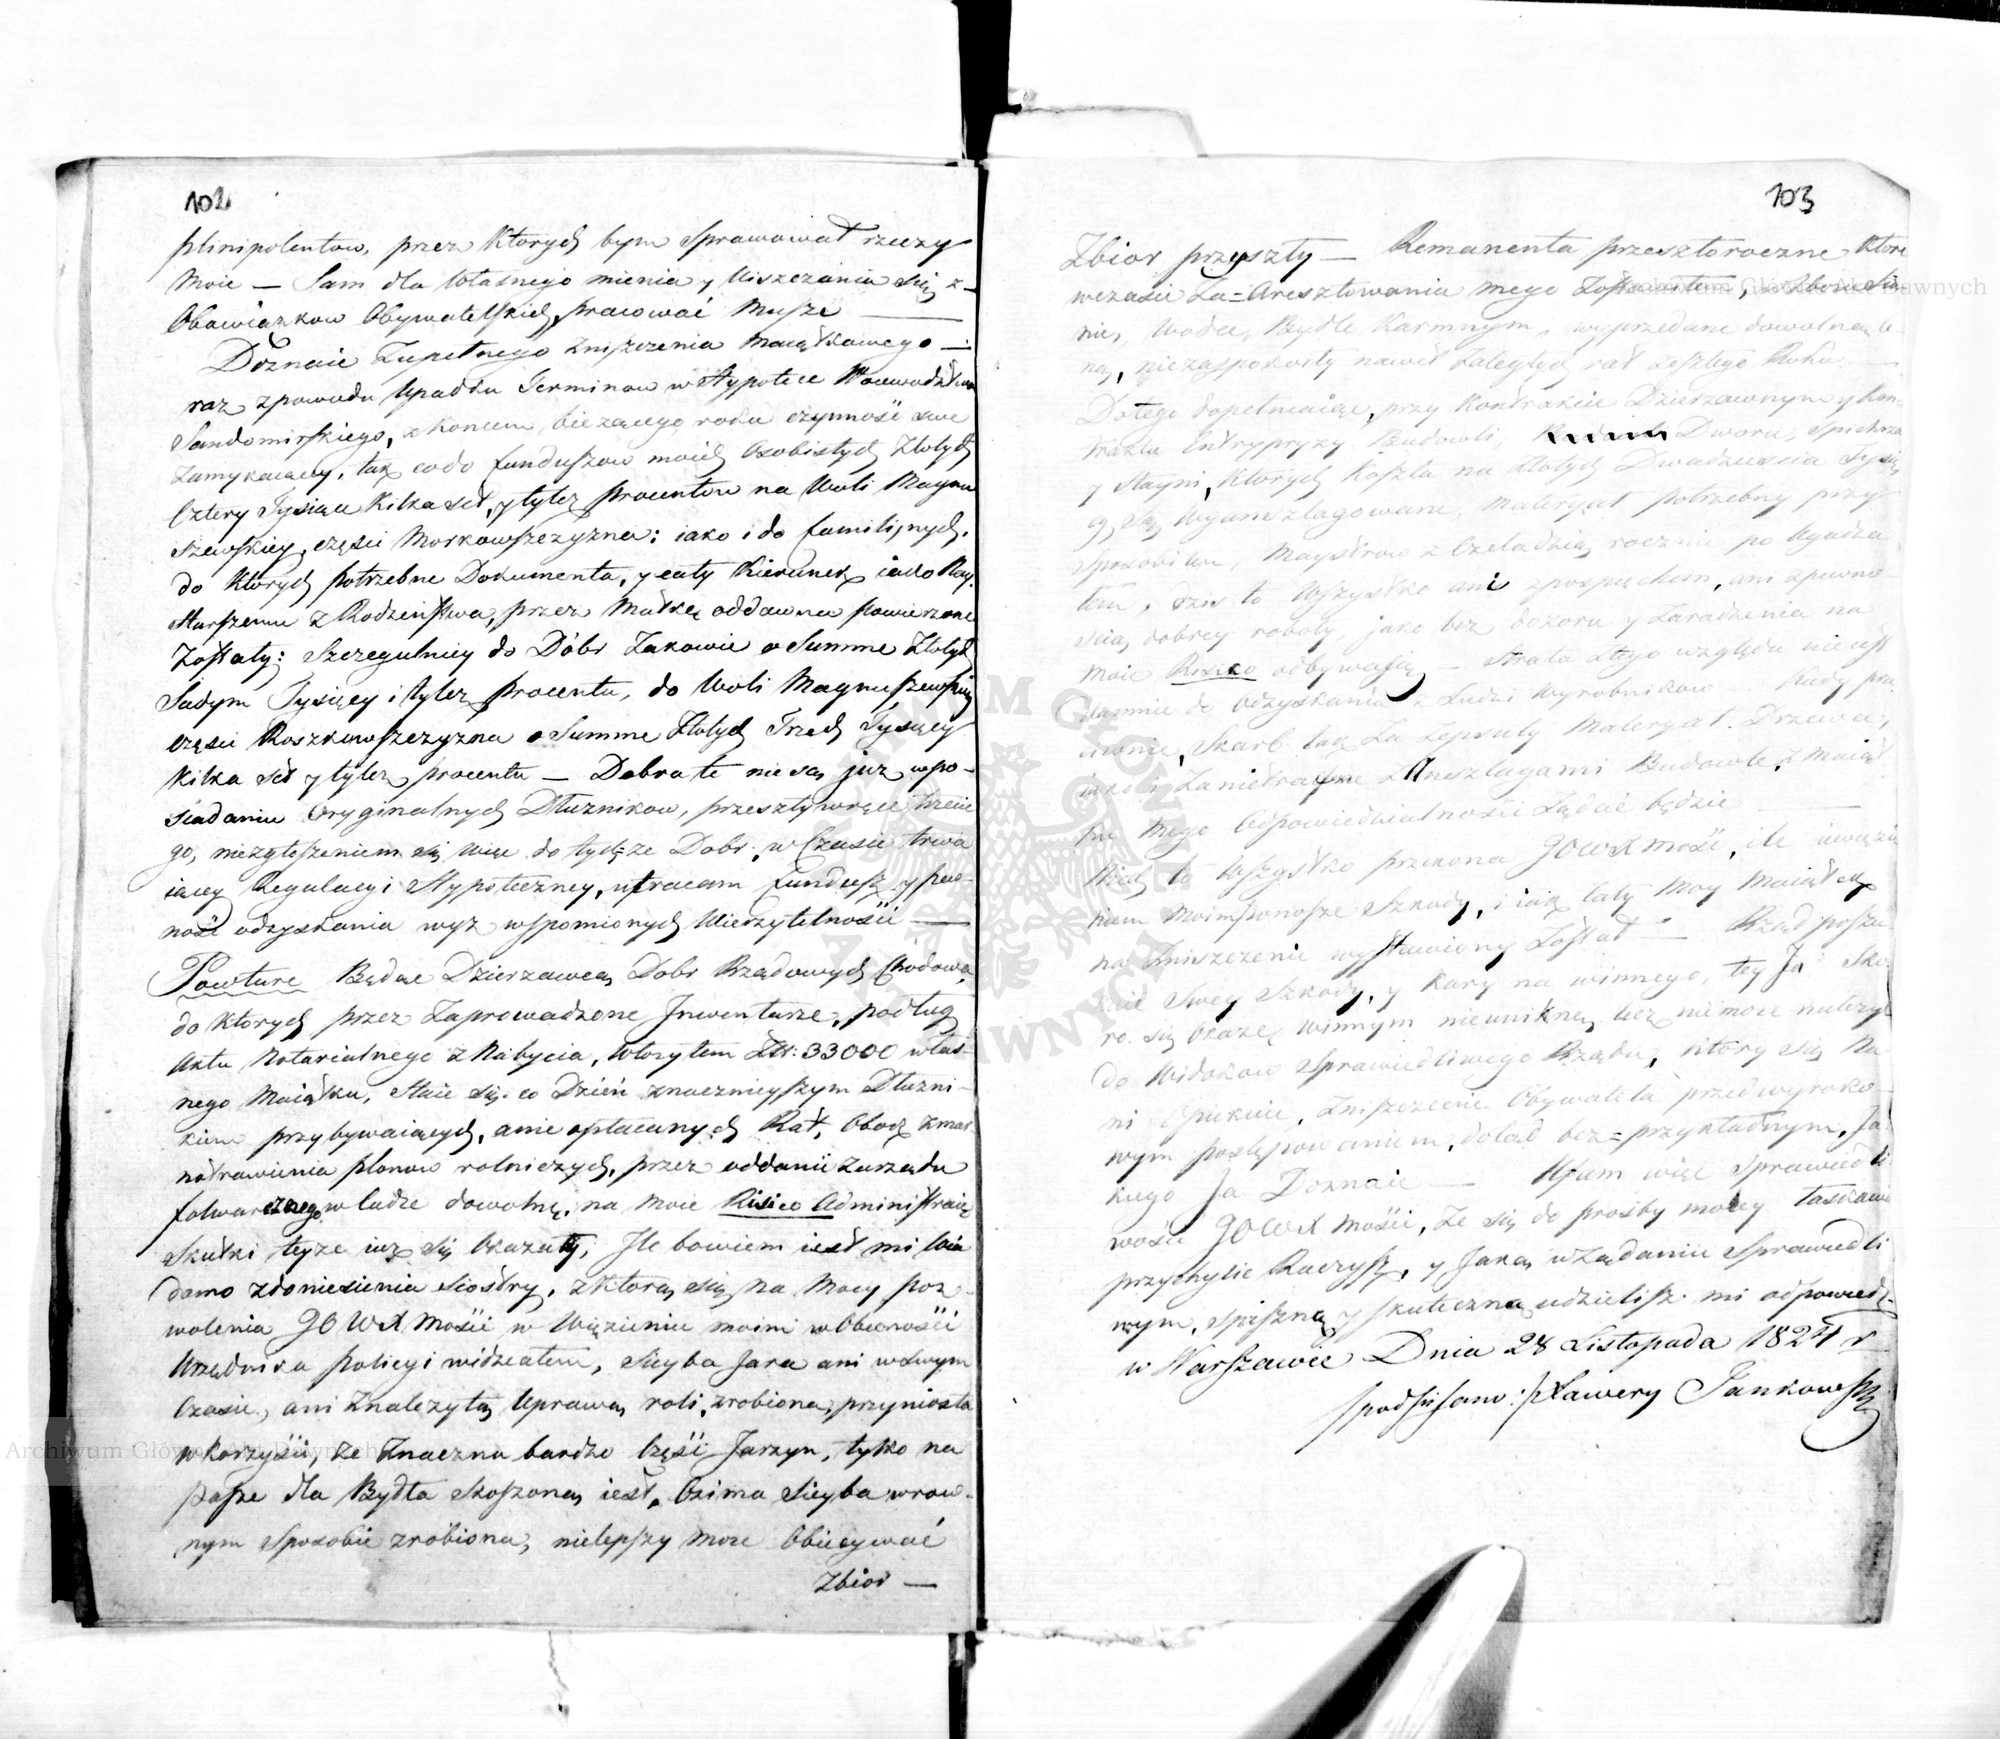 102
plinipolentow, przez Ktorych bym Sprawował rzeczy
Moie — Sam dla własnego mienia y Uiszczania się z
Obowiązkow Obywatelskich, pracować Muszę —
Doznaię Zupełnego zniszczenia Maiątkowego —
raz z powodu Upadku Terminow w Hypotece Woiewodztwa
Sandomirskiego, z koncem bieżącego roku czynnosci swe
Zamykaiącey, tak co do funduszow moich Osobistych Złotych
Cztery Tysiące Kilka set, y tyleż procentow na Woli Magnu
szewskiey, części Morkowszczyzna: iako i do familijnych,
do Ktorych potrzebne Dokumenta, y cały Kierunek iako Nay
Starszemu z Rodzeństwa, przez Matkę oddawna powierzone
Zostały: Szczegulniey do Dóbr Zakowie o Summę Złotych
Siedym Tysięcy i tyleż procentu, do Woli Magnuszewskiey
części Roszkowszczyzna o Summę Złotych Trzech Tysięcy
Kilka set y tyleż procentu — Dobra te nie są już w po-
siadaniu Oryginalnych Dłużnikow, przeszły w ręce trzecie
go, niezgłoszeniem się więc do tychże Dobr, w Czasie trwa
iącey Regulacyi Hypoteczney, utracam fundusz y pew-
ność odzyskania wyż wspomionych Wierzytelności —
Powtore Będąc Dzierzawcą Dobr Rządowych Chodowa,
do Ktorych przez Zaprowadzone Inwentarze, podług
Aktu Notarialnego z Nabycia, włożyłem Złt: 33000 włas-
nego Maiątku, Staie się co Dzień znacznieyszym Dłużni-
kiem przybywaiących, a nie opłacanych Rat, Obok zmar-
notrawienia plonow rolniczych, przez oddanie zarządu
folwarcznego w ludze dowolnę, na moie Risico Administracię
Skutki teyże iuż się Okazały, Ile bowiem iest mi wia
domo z doniesienia Siostry, z Ktorą się na Mocy poz-
wolenia JO WX Mości w Więzieniu moim w Obecności
Urzędnika policyi widziałem, Sieyba Jara ani w swym
Czasie, ani z należytą Uprawą roli, zrobiona, przyniosła
w korzyści, że Znaczna bardzo Część Jarzyn, tylko na
paszę dla Bydła skoszoną iest, Ozima Sieyba w row-
nym Sposobie zrobiona, nielepszy może Obiecywać
Zbior —
103
Zbior przyszły — Remanenta przeszłoroczne Ktore
w czasie Za-Aresztowania mego Zostawiłem, w Zbożu Sia
nie, Wodce, Bydle Karmnym, wyprzedane dowolną ce-
ną, niezaspokoiły nawet Zaległych rat Zeszłego Roku —
Do tego dopełniaiąc, przy Kontrakcie Dzierzawnym y Kon-
traktu Entrypryzy Budowli, Dworu, Spichrza
y Stayni, Ktorych Koszta na Złotych Dwadzieścia Tysię
cy są Wyanszlagowane, Materyał potrzebny przy
sposobiłem, Maystrow z Czeladzią rocznie po Ugadza
łem, dziś to Wszystko ani z pospiechem, ani z pewno-
scią dobrey roboty jako bez dozoru y Zaradzenia na
moie Risico odbywa się — strata z tego względu nie iest
dla mnie do Odzyskania z Ludzi Wyrobnikow — Kiedy prze
ciwnie, Skarb tak za Zepsuty Materyał Drzewa,
iako i Zanietrafne z Anszlagami Budowle, z Maiąt-
ku Mego Odpowiedzialności Żądać będzie —
Niech to Wszystko przekona JOWX Mość, ile uwięzie
niem moim ponoszę Szkody, i iak cały Moy Maiątek
na Zniszczenie wystawiony Został — Rząd poszu
kuie Swey Szkody, y Kary na winnego, tey Ja sko-
ro się Okażę winnym nieuniknę, lecz niemoże należyć
do Widokow Sprawiedliwego Rządu, Ktory się Na
mi Opiekuie, Zniszczenie Obywatela przedwyroko-
wym postępowaniem, dotąd bez-przykładnym, Ja
kiego Ja Doznaię — Ufam więc Sprawiedli
wości JOWX Mości, że się do prosby moiey łaskawie
przychylić Raczysz, y Jaką w Żądaniu Sprawiedli
wym, spieszną y skuteczną udzielisz mi odpowiedź.
w Warszawie Dnia 28 Listopada 1824 r
/podpisano:/ Xawery Jankowski